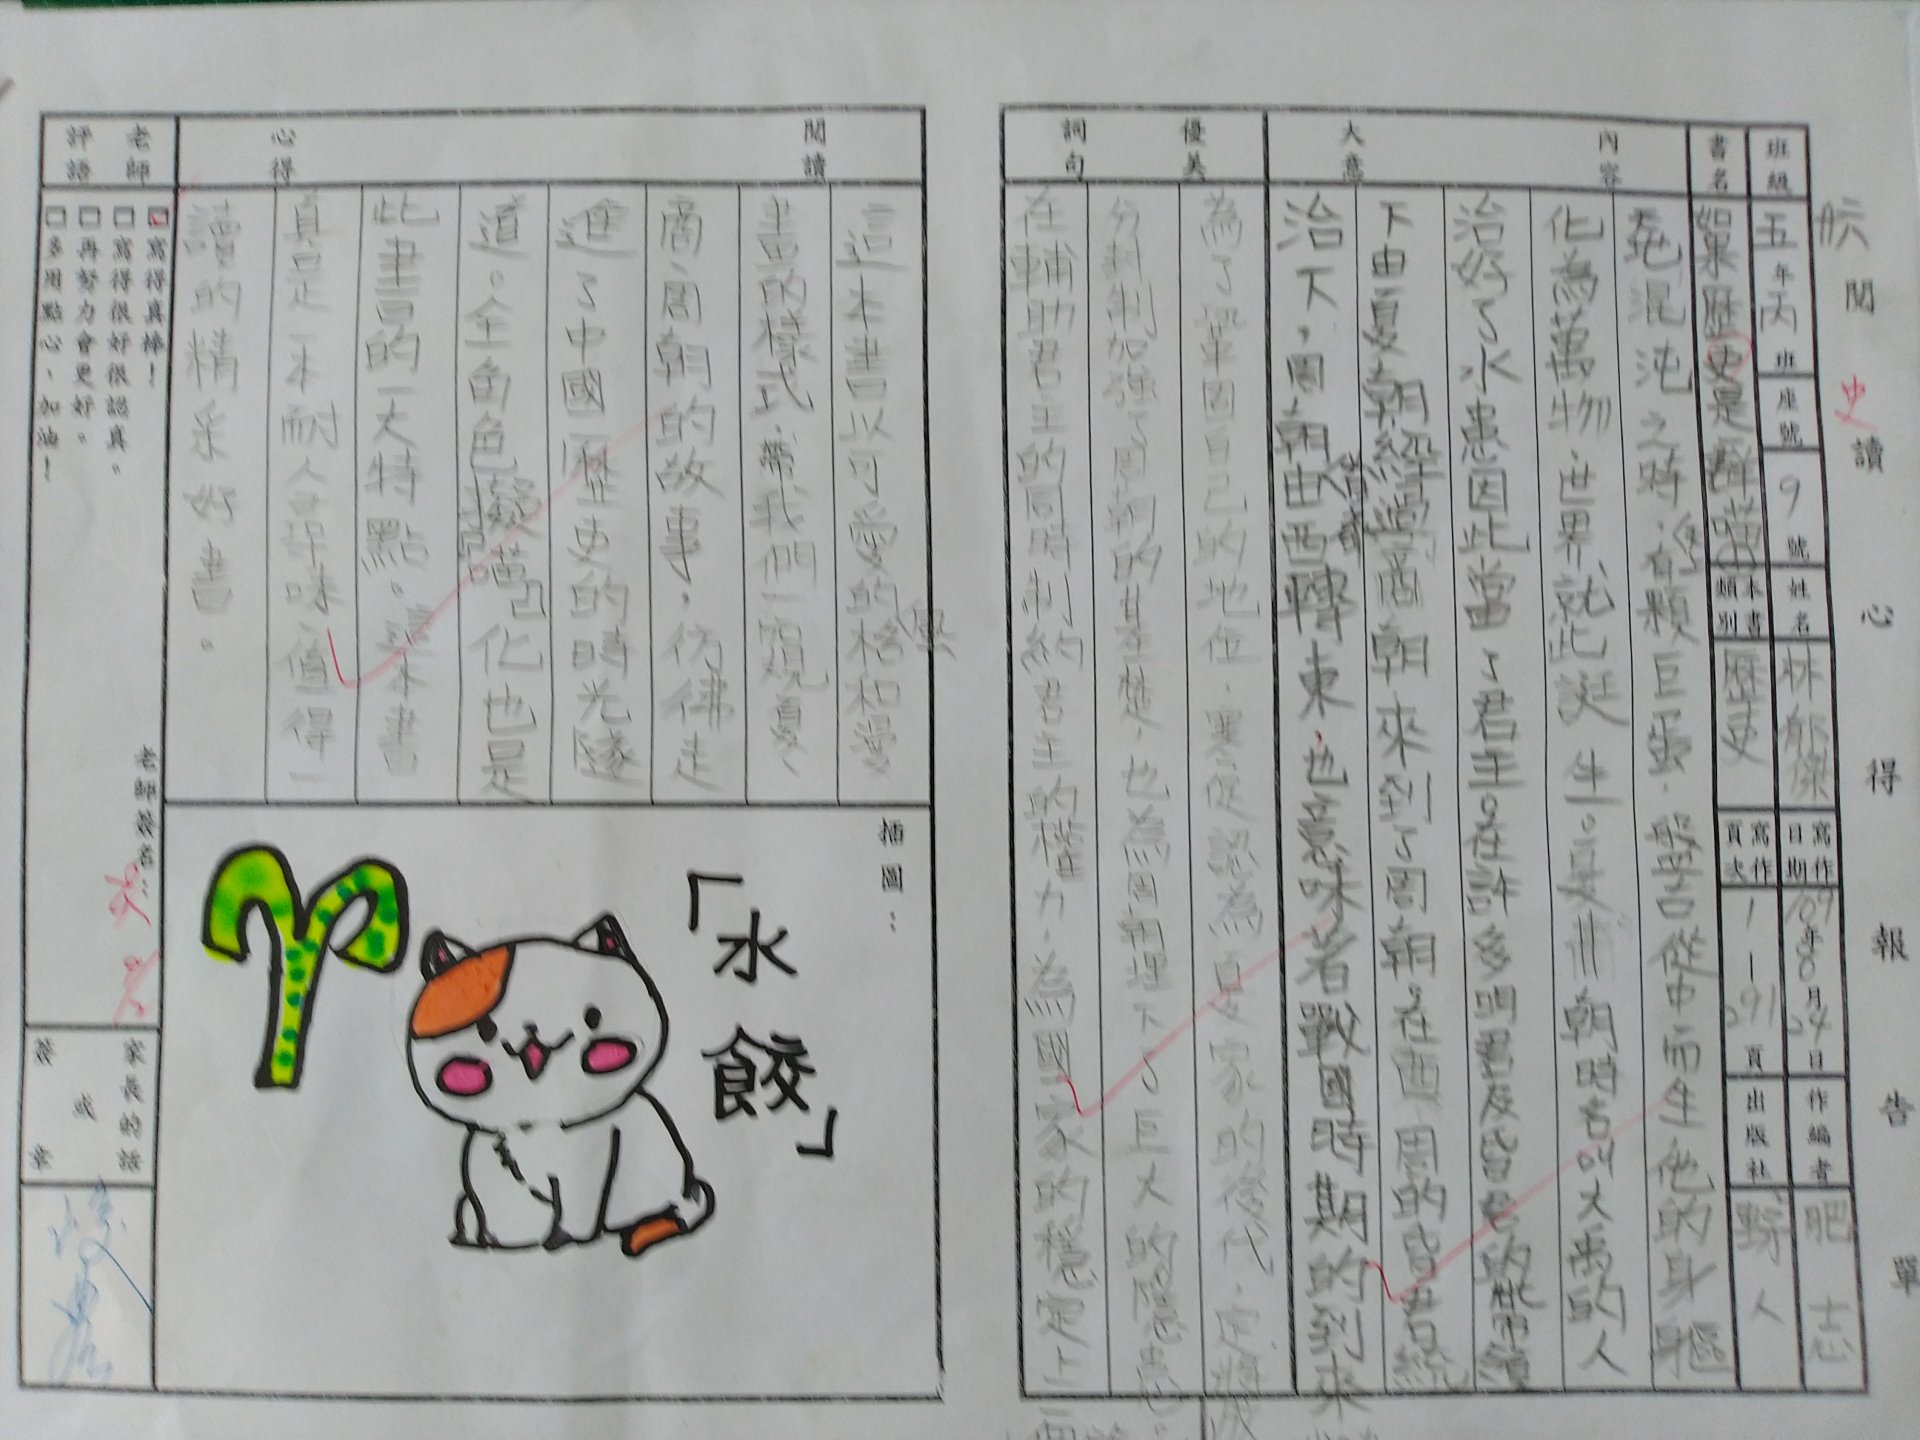 閱讀心得報告單
史
班級 五年丙班 座號 9號 姓名 林 寫作日期 109年8月24日 作編者 肥志
書名 如果歷史是一群喵 本書類別 歷史 寫作頁次 1-291頁 出版社 野人
內容大意
天地混沌之時,有顆巨蛋,盤古從中而生,他的身軀
化為萬物,世界就此誕生。夏朝時名叫大禹的人
治好了水患因此當了君主。在許多明君及昏君的帶領
下由夏朝經過商朝來到了周朝。在西周的昏君統
治下,周朝由西轉東,也意味著戰國時期的到來
優美詞句
為了鞏固自己的地位,寒促認為夏家的後代,定將成
分封制加強了周朝的基礎,也為周朝埋下了巨大的隱患。
在輔助君主的同時制約君主的權力,為國家的穩定上
閱讀心得
這本書以可愛的格和漫
畫的樣式,帶我們一窺夏、
商、周朝的故事,彷彿走
進了中國歷史的時光隧
道。全角色擬喵化也是
此書的一大特點。這本書
真是一本耐人尋味、值得一
讀的精采好書。
插圖:
「水餃」
老師評語
寫得真棒!
寫得很好很認真。
再努力會更好。
多用點心,加油!
老師簽名:
家長的話
簽或章